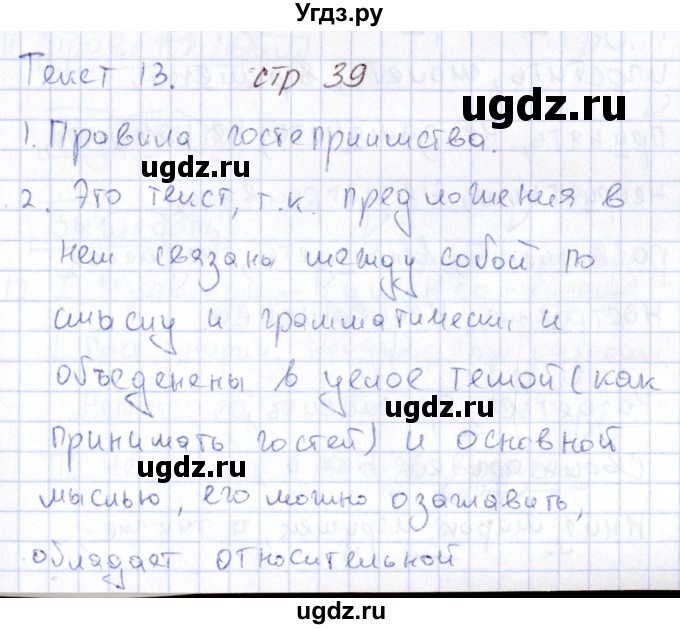 Угдз.ру
Текст 13. стр 39
ugdz.ru
1. Правила гостеприимства.
ugdz.ru
2. Это текст, т.к. предложения в
ugdz.ru
нем связаны между собой по
смыслу и грамматически, и
объеденены в целое темой (как
ugdz.ru
принимать гостей) и основной
ugdz.ru
мыслью, его можно озаглавить,
обладает относительной
ugdz.ru
ugdz.ru